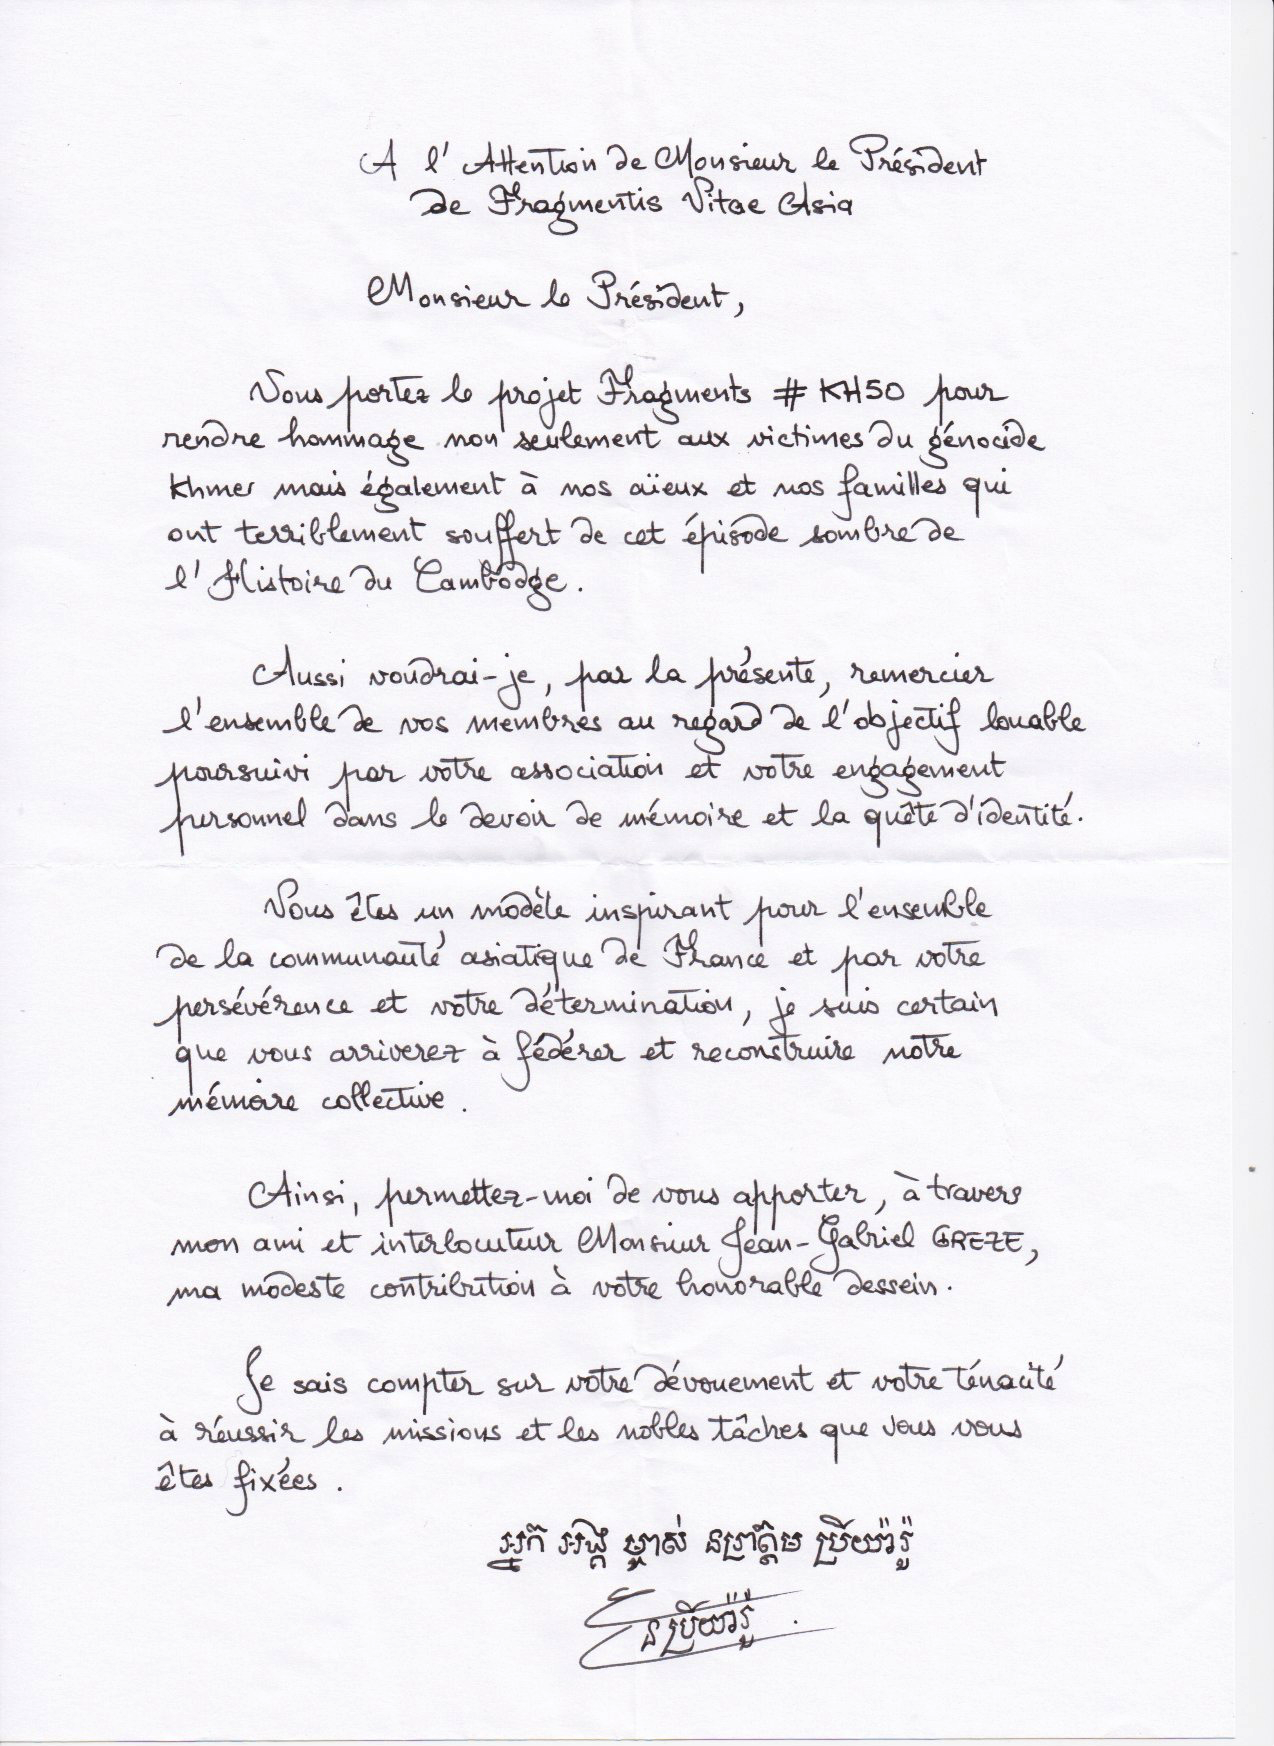 A l'Attention de Monsieur le Président
de Fragmentis Vitae Asia
Monsieur le Président,
Vous portez le projet Fragments # KH50 pour
rendre hommage non seulement aux victimes du génocide
Khmer mais également à nos aïeux et nos familles qui
ont terriblement souffert de cet épisode sombre de
l'Histoire du Cambodge.
Aussi voudrai-je, par la présente, remercier
l'ensemble de vos membres au regard de l'objectif louable
poursuivi par votre association et votre engagement
personnel dans le devoir de mémoire et la quête d'identité.
Vous êtes un modèle inspirant pour l'ensemble
de la communauté asiatique de France et par votre
persévérence et votre détermination, je suis certain
que vous arriverez à fédérer et reconstruire notre
mémoire collective.
Ainsi, permettez-moi de vous apporter, à travers
mon ami et interlocuteur Monsieur Jean-Gabriel GREZE,
ma modeste contribution à votre honorable dessein.
Je sais compter sur votre dévouement et votre ténacité
à réussir les missions et les nobles tâches que vous vous
êtes fixées.
អ្នក អង្គ ម្ចាស់ នរោត្តម